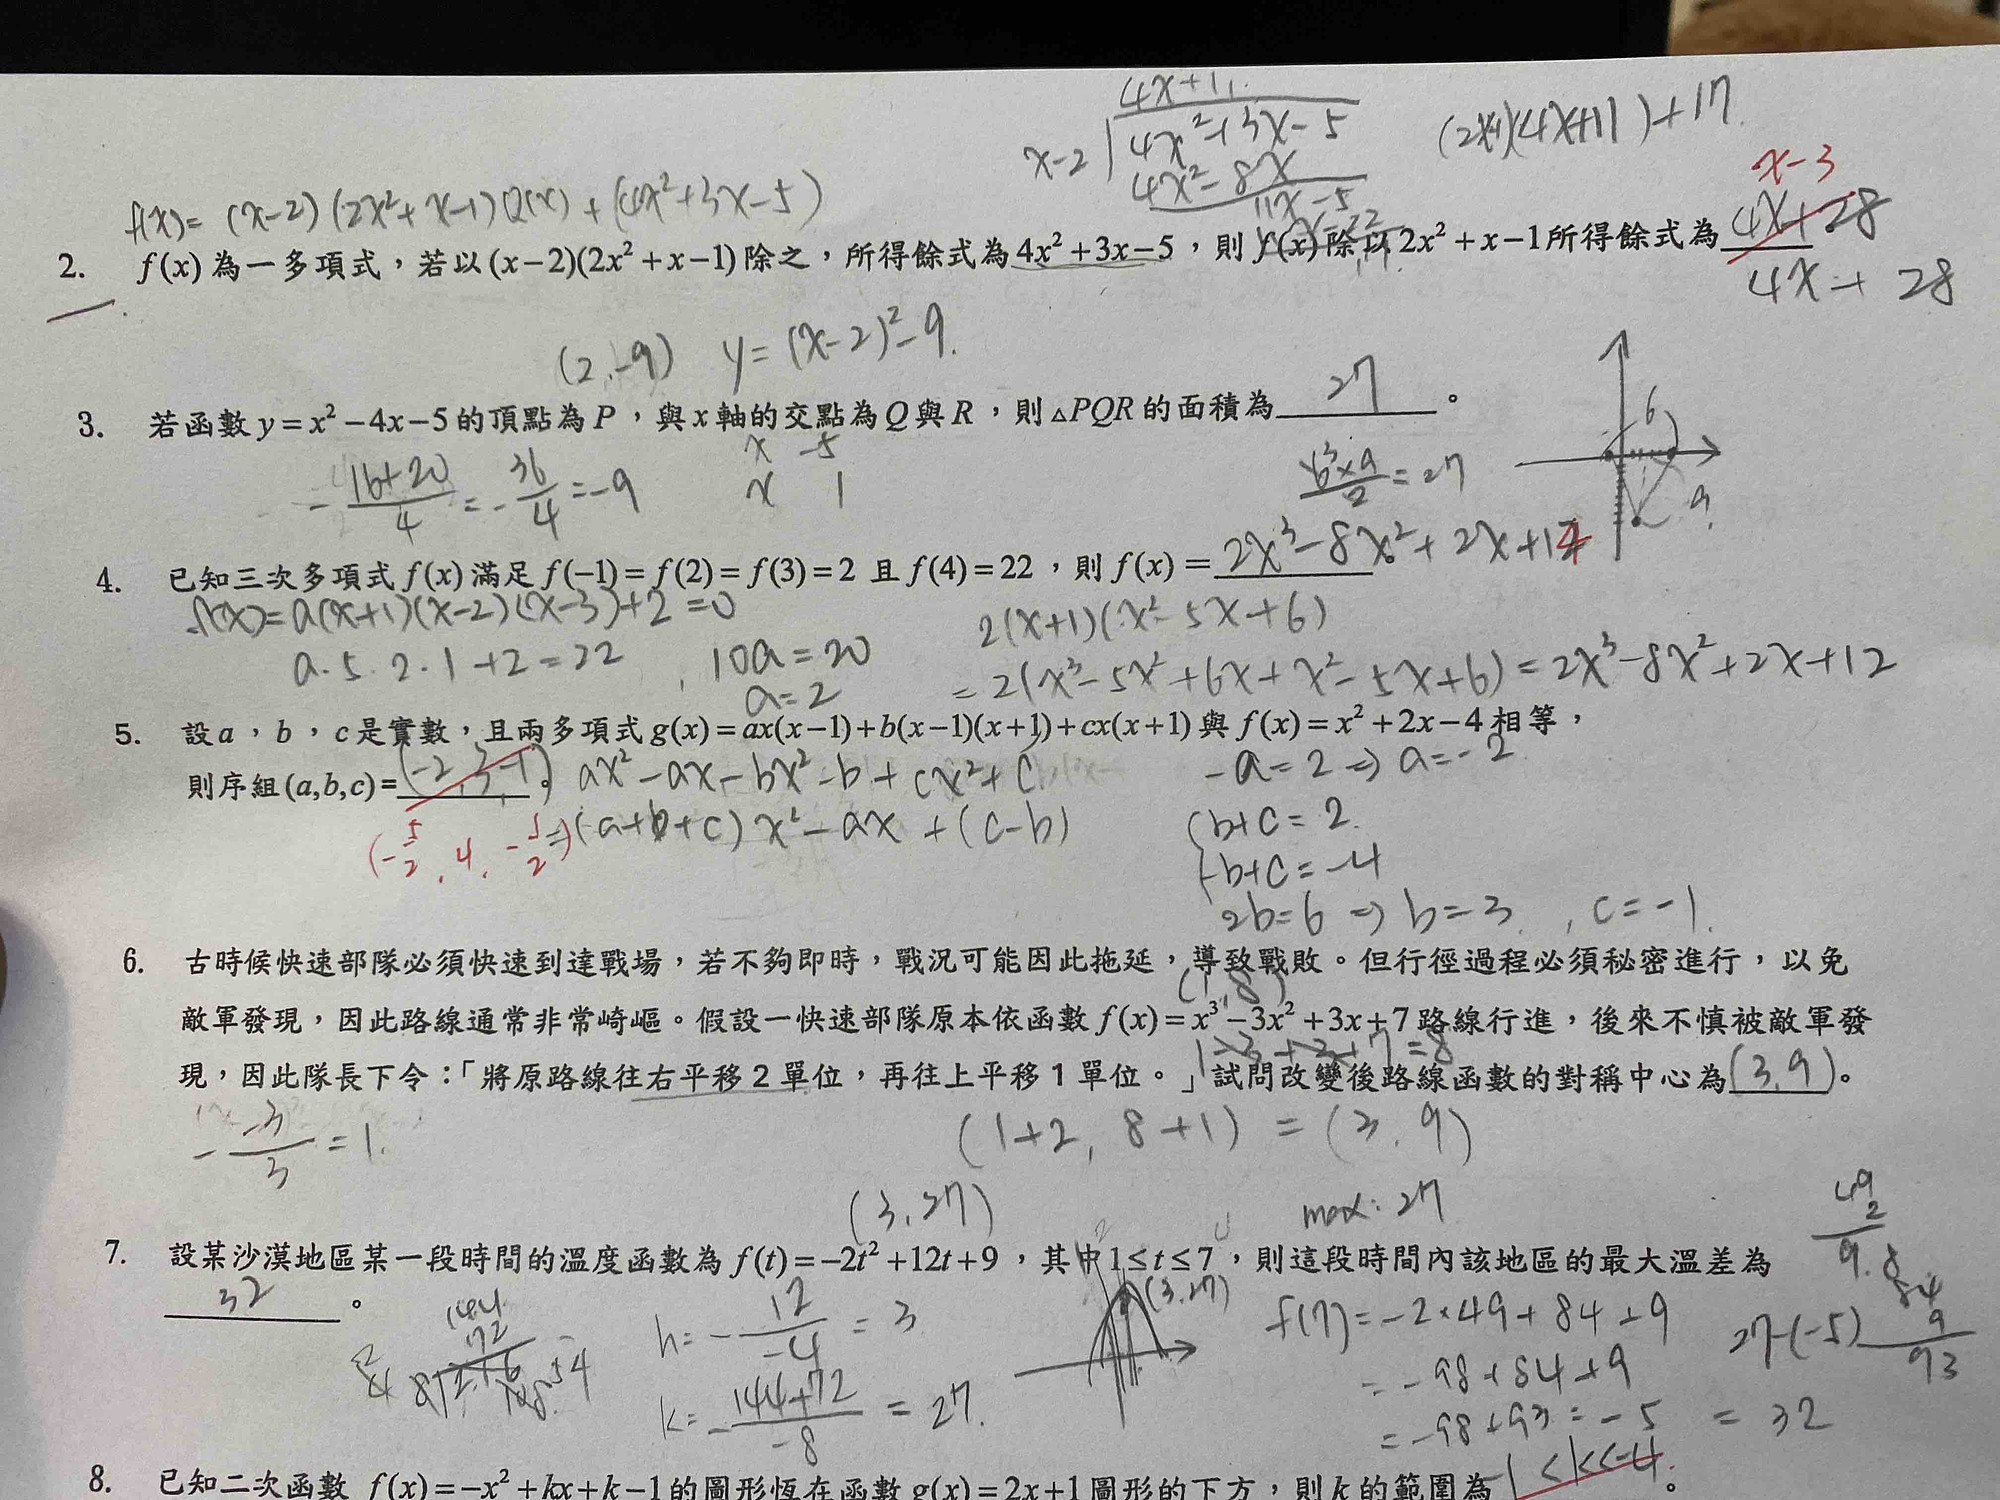 4x+11
x-2 4x²+3x-5
(2x+1)(4x+11)+17
4x²-8x
x-3
11x-5
f(x)=(x-2)(2x²+x-1)Q(x)+(4x²+3x-5)
4x+28
2. f(x)為一多項式，若以(x-2)(2x²+x-1)除之，所得餘式為4x²+3x-5，則f(x)除以2x²+x-1所得餘式為
4x+28
(2,-9) y=(x-2)²-9.
3. 若函數y=x²-4x-5的頂點為P，與x軸的交點為Q與R，則△PQR的面積為 27 。
6
x -5
x 1
-(16+20)/4=-36/4=-9
6×9/2=27
9
4. 已知三次多項式f(x)滿足f(-1)=f(2)=f(3)=2且f(4)=22，則f(x)=2x³-8x²+2x+14。
f(x)=a(x+1)(x-2)(x-3)+2=0
2(x+1)(x²-5x+6)
a·5·2·1+2=22, 10a=20
a=2
=2(x³-5x²+6x+x²-5x+6)=2x³-8x²+2x+12
5. 設a，b，c是實數，且兩多項式g(x)=ax(x-1)+b(x-1)(x+1)+cx(x+1)與f(x)=x²+2x-4相等，
則序組(a,b,c)=(-2,3,-1)。
ax²-ax-bx²-b+cx²+c
-a=2⇒a=-2
(-5/2,4,-1/2)
⇒(a+b+c)x²-ax+(c-b)
b+c=2
-b+c=-4
2b=6⇒b=3, c=-1
6. 古時候快速部隊必須快速到達戰場，若不夠即時，戰況可能因此拖延，導致戰敗。但行徑過程必須秘密進行，以免
(1,8)
敵軍發現，因此路線通常非常崎嶇。假設一快速部隊原本依函數f(x)=x³-3x²+3x+7路線行進，後來不慎被敵軍發
1-3+3+7=8
現，因此隊長下令：「將原路線往右平移2單位，再往上平移1單位。」試問改變後路線函數的對稱中心為(3,9)。
-(-3)/3=1.
(1+2,8+1)=(3,9)
(3,27)
max:27
49
2
9 8
7. 設某沙漠地區某一段時間的溫度函數為f(t)=-2t²+12t+9，其中1≤t≤7，則這段時間內該地區的最大溫差為
32 。
144
72
h=-12/-4=3
(3,27)
f(7)=-2×49+84+9
84
9
93
27-(-5)
=-98+84+9
k=-(144+72)/-8=27.
=-98+93=-5
=32
8. 已知二次函數f(x)=-x²+kx+k-1的圖形恆在函數g(x)=2x+1圖形的下方，則k的範圍為-1<k<-4。